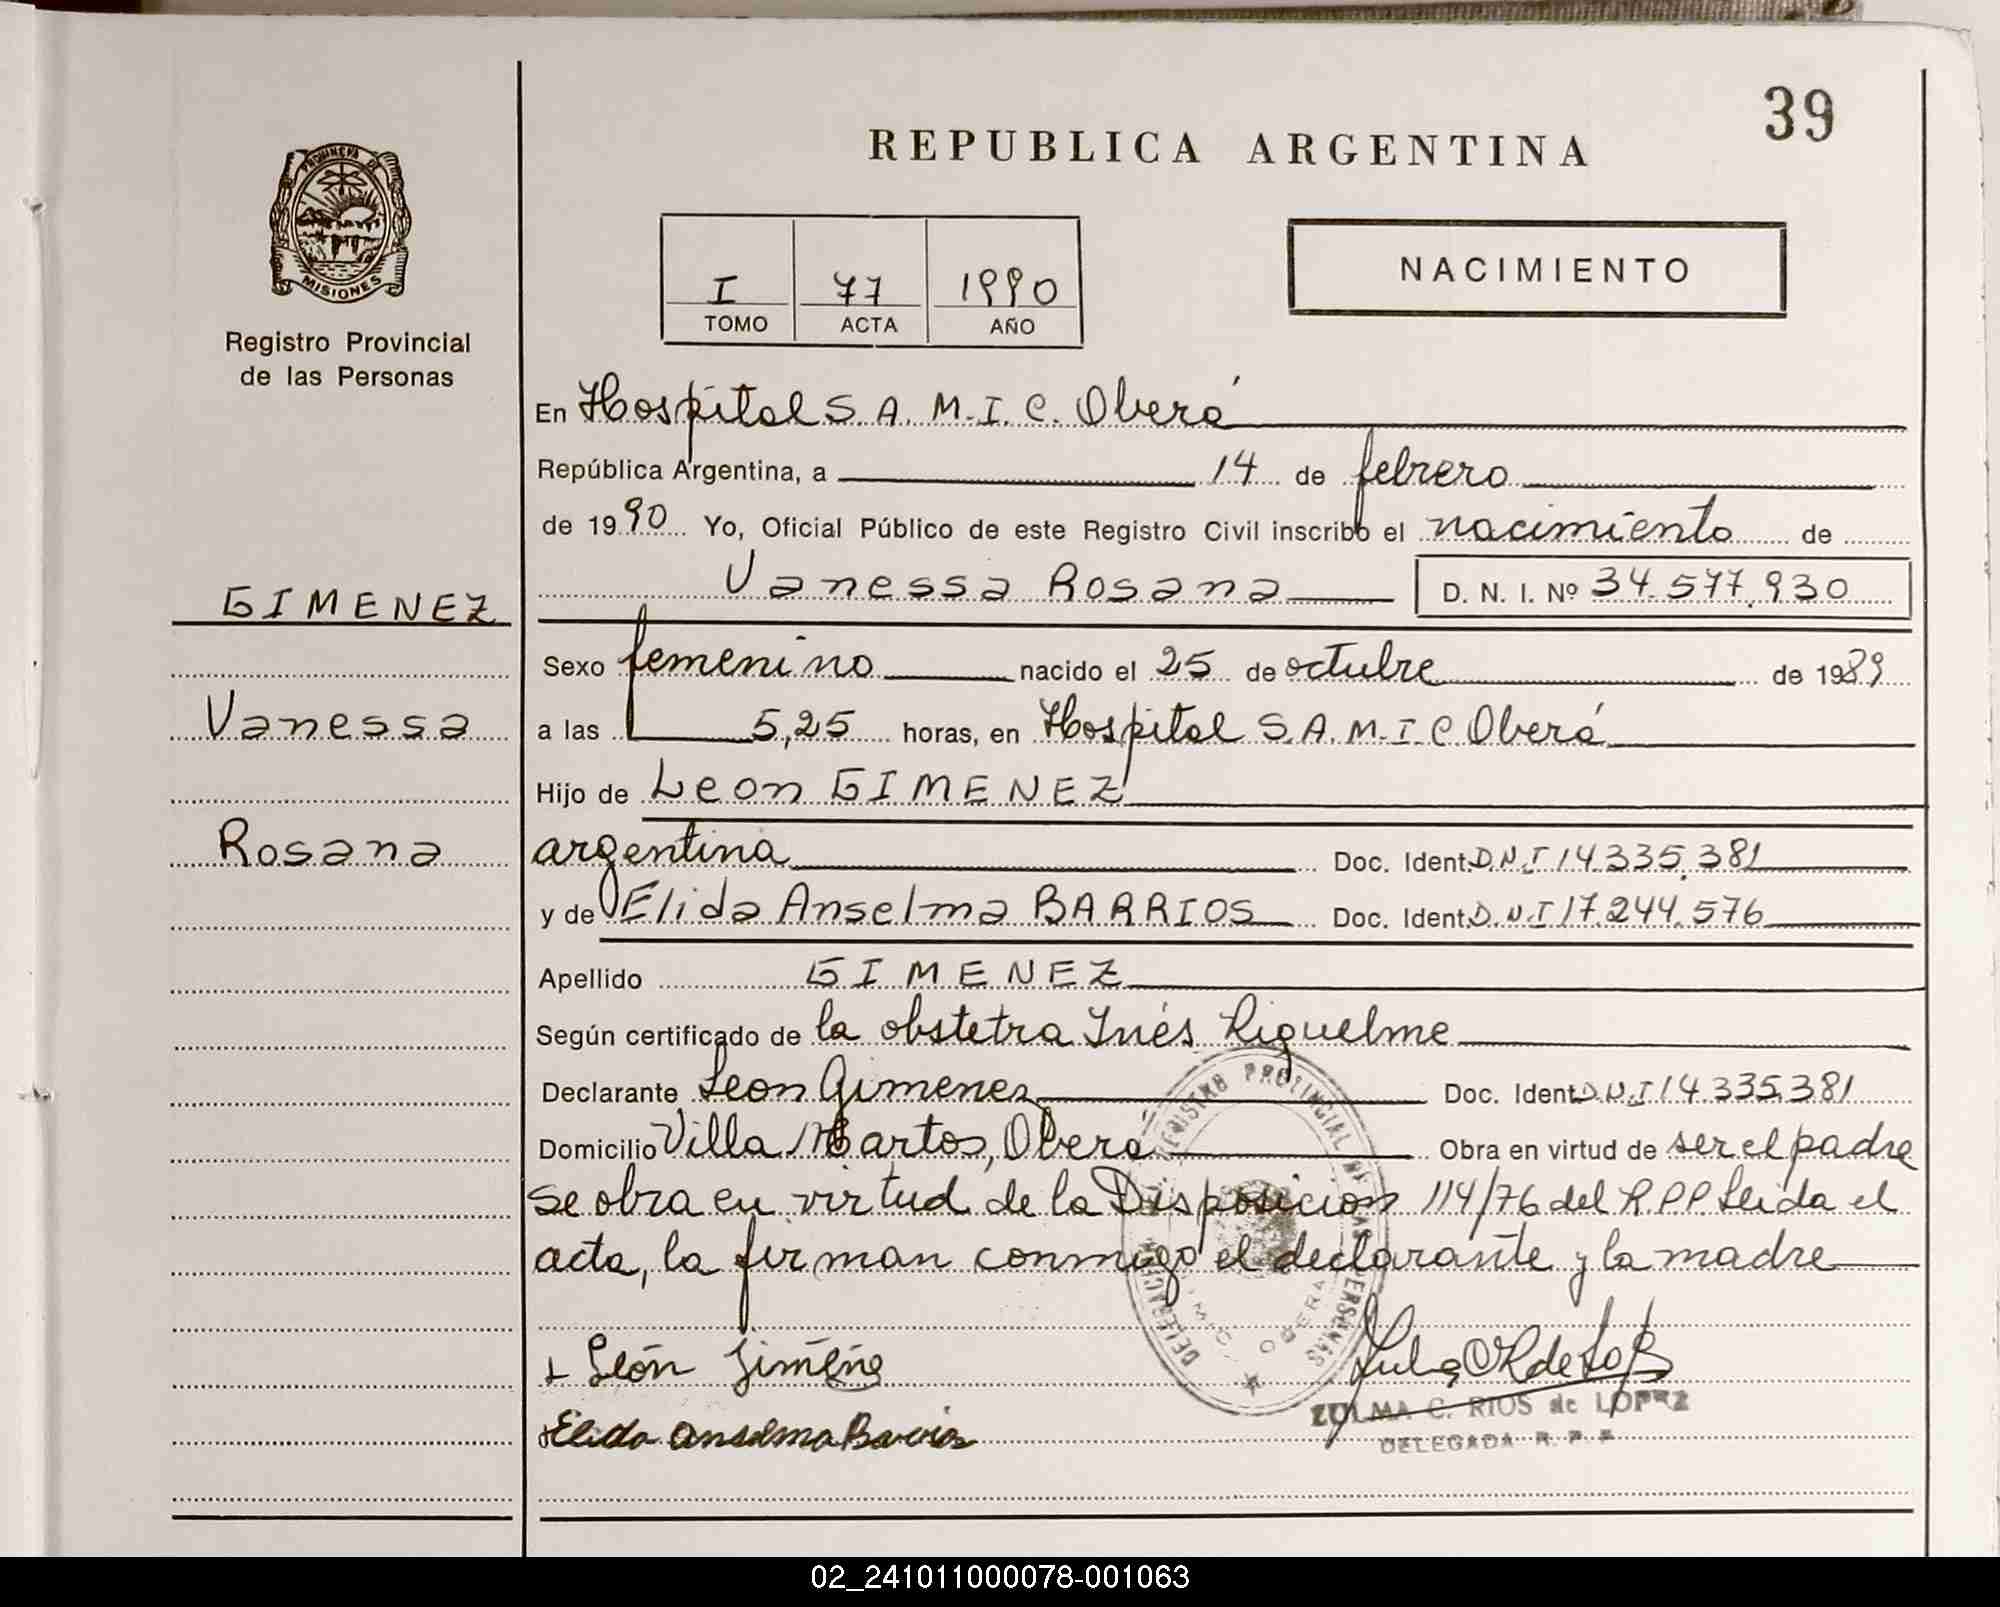 39
REPUBLICA ARGENTINA
PROVINCIA DE
MISIONES
Registro Provincial
de las Personas
I 77 1990
TOMO ACTA AÑO
NACIMIENTO
En Hospital S.A.M.I.C. Oberá
República Argentina, a 14 de febrero
de 1990 Yo, Oficial Público de este Registro Civil inscribo el nacimiento de
GIMENEZ
Vanessa
Rosana
Vanessa Rosana D. N. I. Nº 34.577.930
Sexo femenino nacido el 25 de octubre de 1989
a las 5,25 horas, en Hospital S.A.M.I.C Oberá
Hijo de Leon GIMENEZ
argentina Doc. Ident. D.N.I 14.335.381
y de Elida Anselma BARRIOS Doc. Ident. D.N.I 17.244.576
Apellido GIMENEZ
Según certificado de la obstetra Inés Riquelme
Declarante Leon Gimenez Doc. Ident. D.N.I 14.335.381
Domicilio Villa Martos, Oberá Obra en virtud de ser el padre
se obra en virtud de la Disposicion 114/76 del R.P.P. Leida el
acta, la firman conmigo el declarante y la madre
León Jiméne
Elida Anselma Barrios
ZULMA C. RIOS de LOPEZ
DELEGADA R. P. P.
REGISTRO PROVINCIAL DE LAS PERSONAS
OBERA
02_241011000078-001063